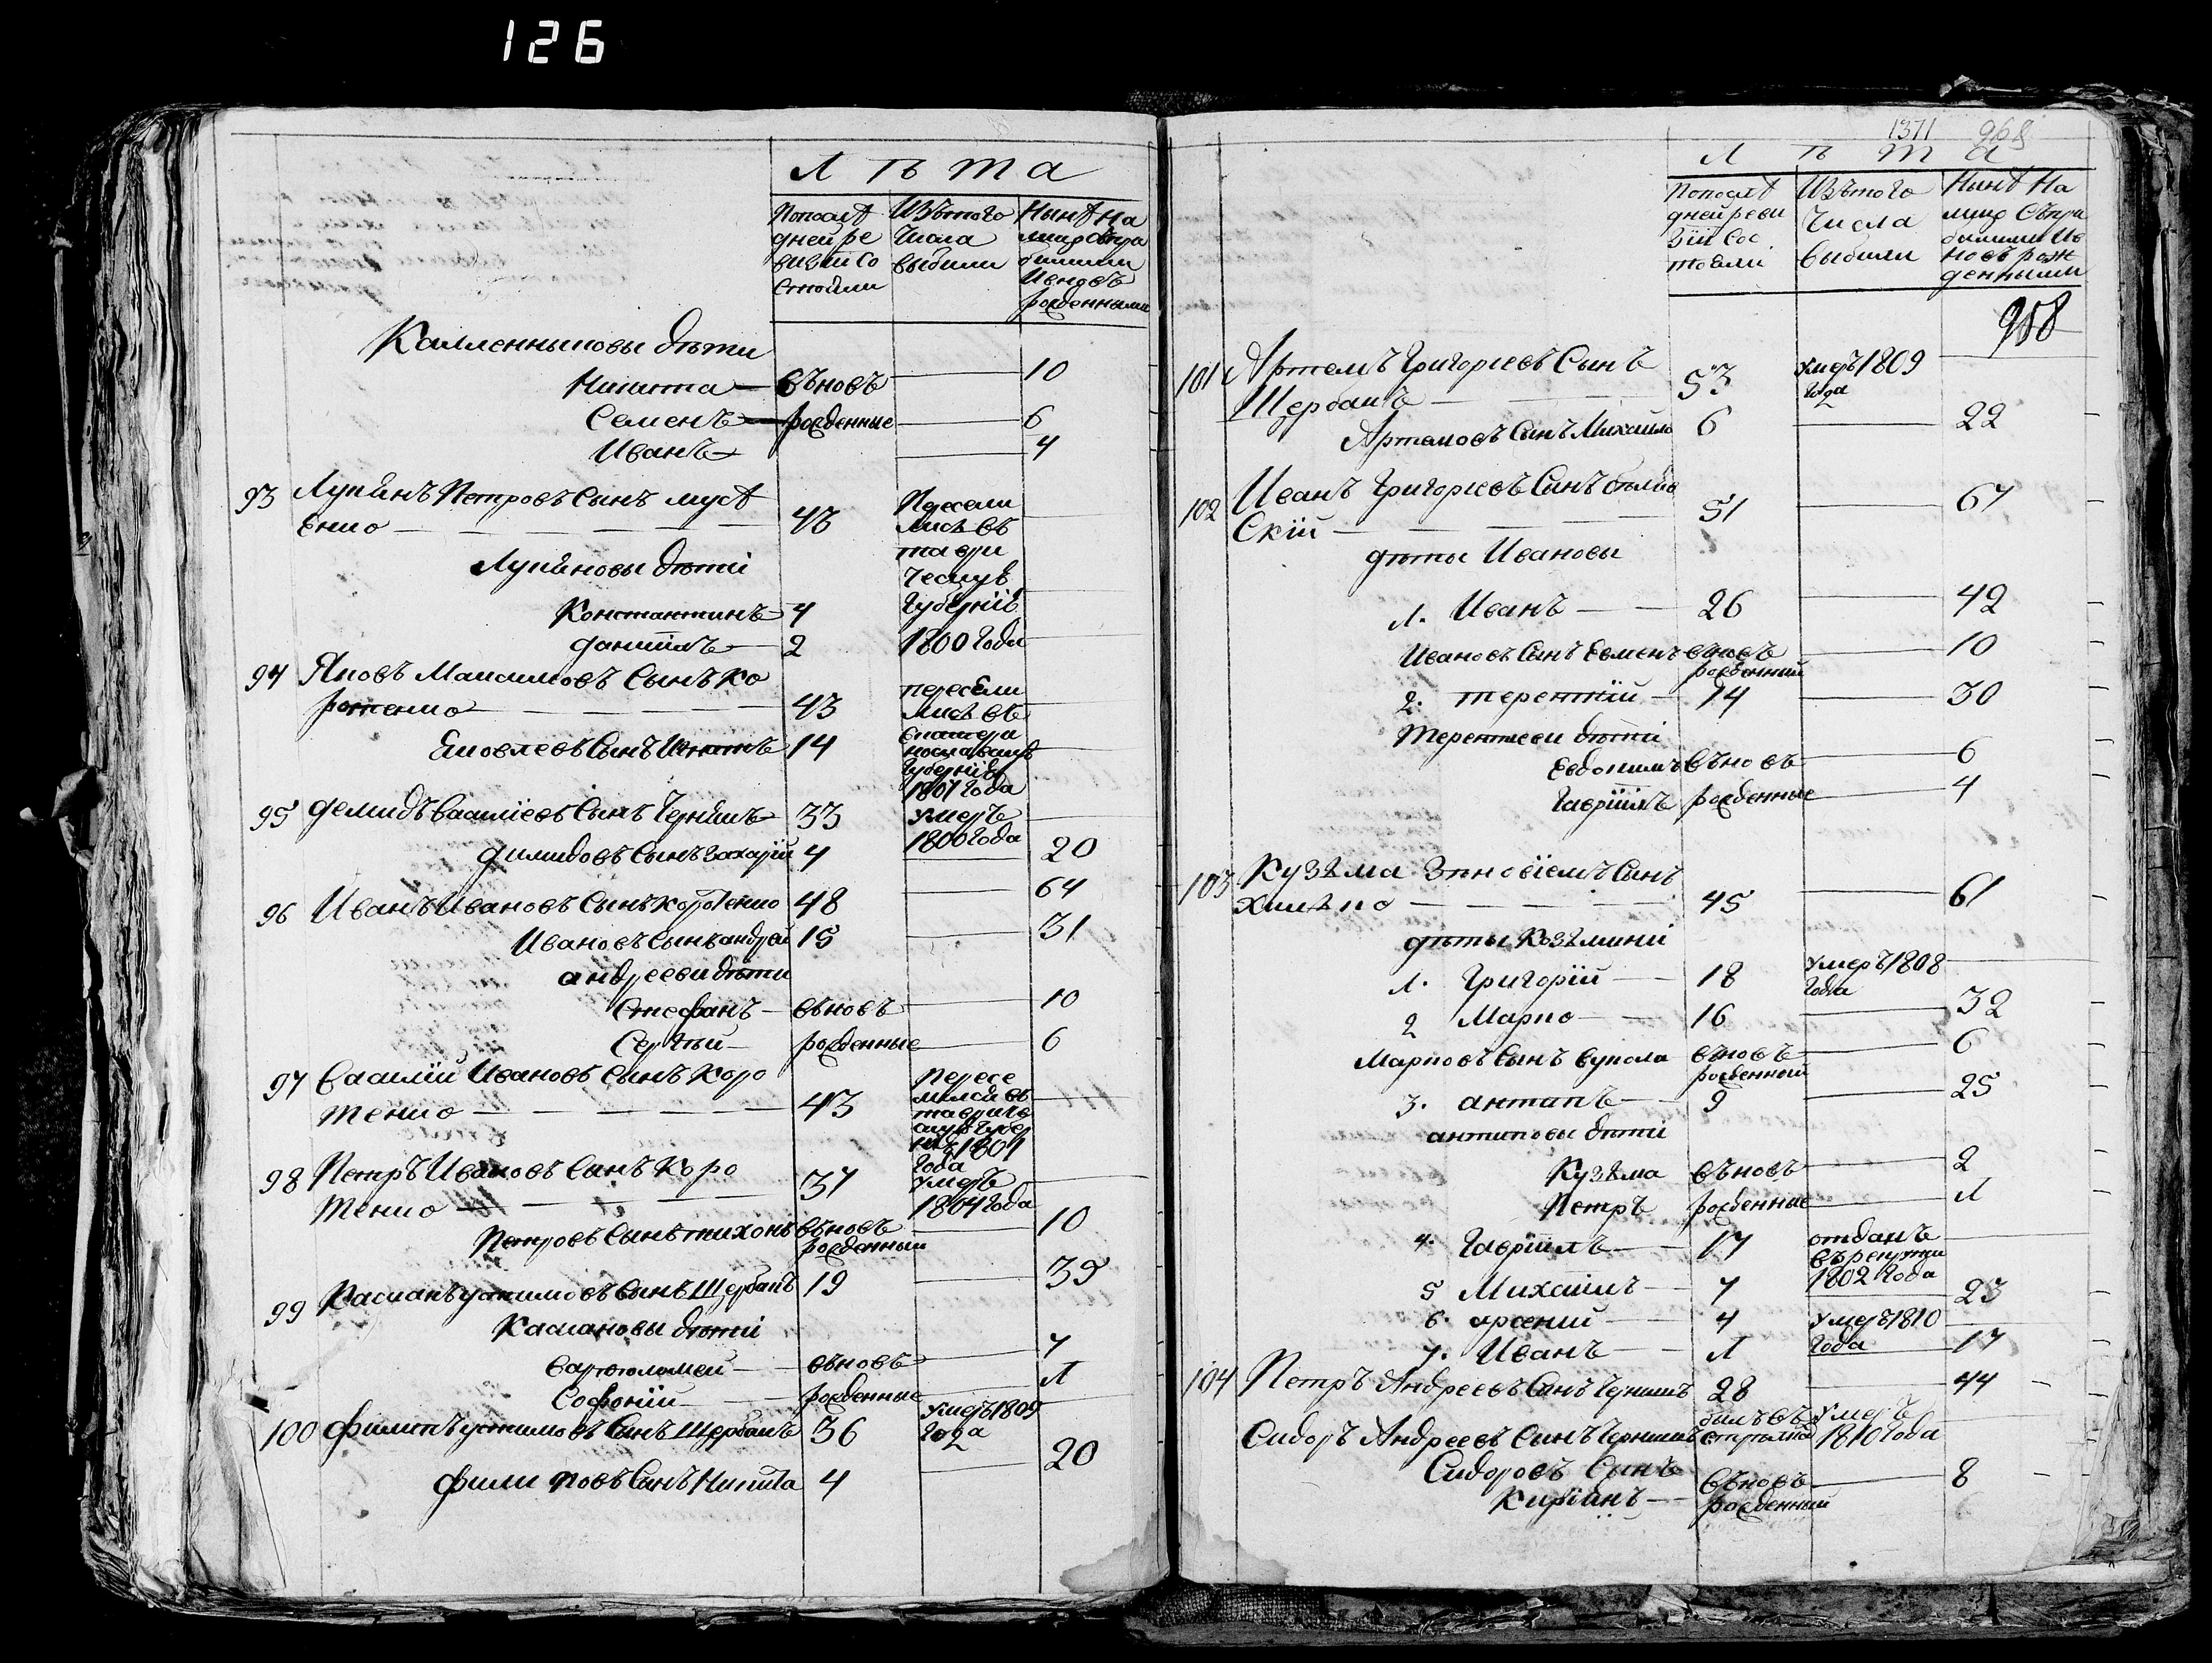 126
Л ѣ т а
Попослѣ
дней ре
визіи со
стояли
Изътого
Числа
выбыли
Нынѣ На
лицо съпри
былыми
Ивновъ
рожденными
Калленныковы дѣти
Никита — вновъ — 10
Семенъ — рожденные — 6
Иванъ — 4
93 Лукіянъ Петровъ Сынъ мусѣ
енко — 43 Пересели
лись въ
таври
ческую
Губернію
1800 Года
Лукіяновы дѣти
Константинъ — 4
Даніилъ — 2
94 Яковъ Максимовъ Сынъ Ко
ротенко — 43 пересели
лись въ
екатери
нославскую
Губернію
1801 Года
Яковлевъ Сынъ Игнатъ 14
95 Демидъ Василіевъ Сынъ Чернышъ — 33 умеръ
1800 Года
Димидовъ Сынъ Захарій 4 — 20
96 Иванъ Ивановъ Сынъ коротенко 48 — 64
Ивановъ Сынъ андрей 15 — 31
андрееви дѣти
Стефанъ — вѣновъ — 10
Сергѣй — рожденные — 6
97 Василій Ивановъ Сынъ Коро
тенко — 43 Пересе
лился въ
тавриче
скую Губер
нію 1801
Года
98 Петръ Ивановъ Сынъ Коро
тенко — 37 умеръ
1804 Года
Петровъ Сынъ тихонъ вѣновъ
рожденный — 10
99 Касианъ устимовъ Сынъ Щербанъ 19 — 35
Касиановы дѣти
Вартоломей — вѣновъ — 7
Софоній — рожденные — 1
100 Филипъ устимовъ Сынъ Щербанъ 36 умеръ 1809
Года
Филиповъ Сынъ Никита 4 — 20
1371 968
Л ѣ т а
Попослѣ
дней реви
зіи сос
тояли
Изътого
Числа
выбыли
Нынѣ На
лицо съпри
былыми ив
новъ рож
денными
958
101 Артемъ Григориевъ Сынъ
Щербанъ — 53 умеръ 1809
Года
Артемовъ Сынъ Михайло 6 — 22
102 Иванъ Григориевъ Сынъ
скій — 51 — 67
дѣты Ивановы
1. Иванъ — 26 — 42
Ивановъ Сынъ Семенъ вновъ
рожденный — 10
2. терентій — 14 — 30
Терентиеви дѣти
Евдокимъ вѣновъ — 6
Гавріилъ рожденные — 4
103 Кузьма Зѣновіемъ Сынъ
Хилько — 45 — 61
дѣты Козьмини
1. Григорій — 18 умеръ 1808
Года
2 Марко — 16 — 32
Марковъ Сынъ вукола вѣновъ
рожденный — 6
3. антапъ — 9 — 25
антиповы дѣти
Кузьма вѣновъ — 2
Петръ рожденные — 1
4. Гавріилъ — 17 отданъ
въ рекруты
1802 Года
5 Михаилъ — 7 — 23
6. арсеній — 4 умеръ 1810
Года
7. Иванъ — 1 — 17
104 Петръ Андреевъ Сынъ Чернышъ 28 — 44
Сидоръ Андреевъ Сынъ Чернышъ былъ въ
умеръ
1810 Года
Сидоровъ Сынъ
Киріянъ — вѣновъ
рожденный — 8